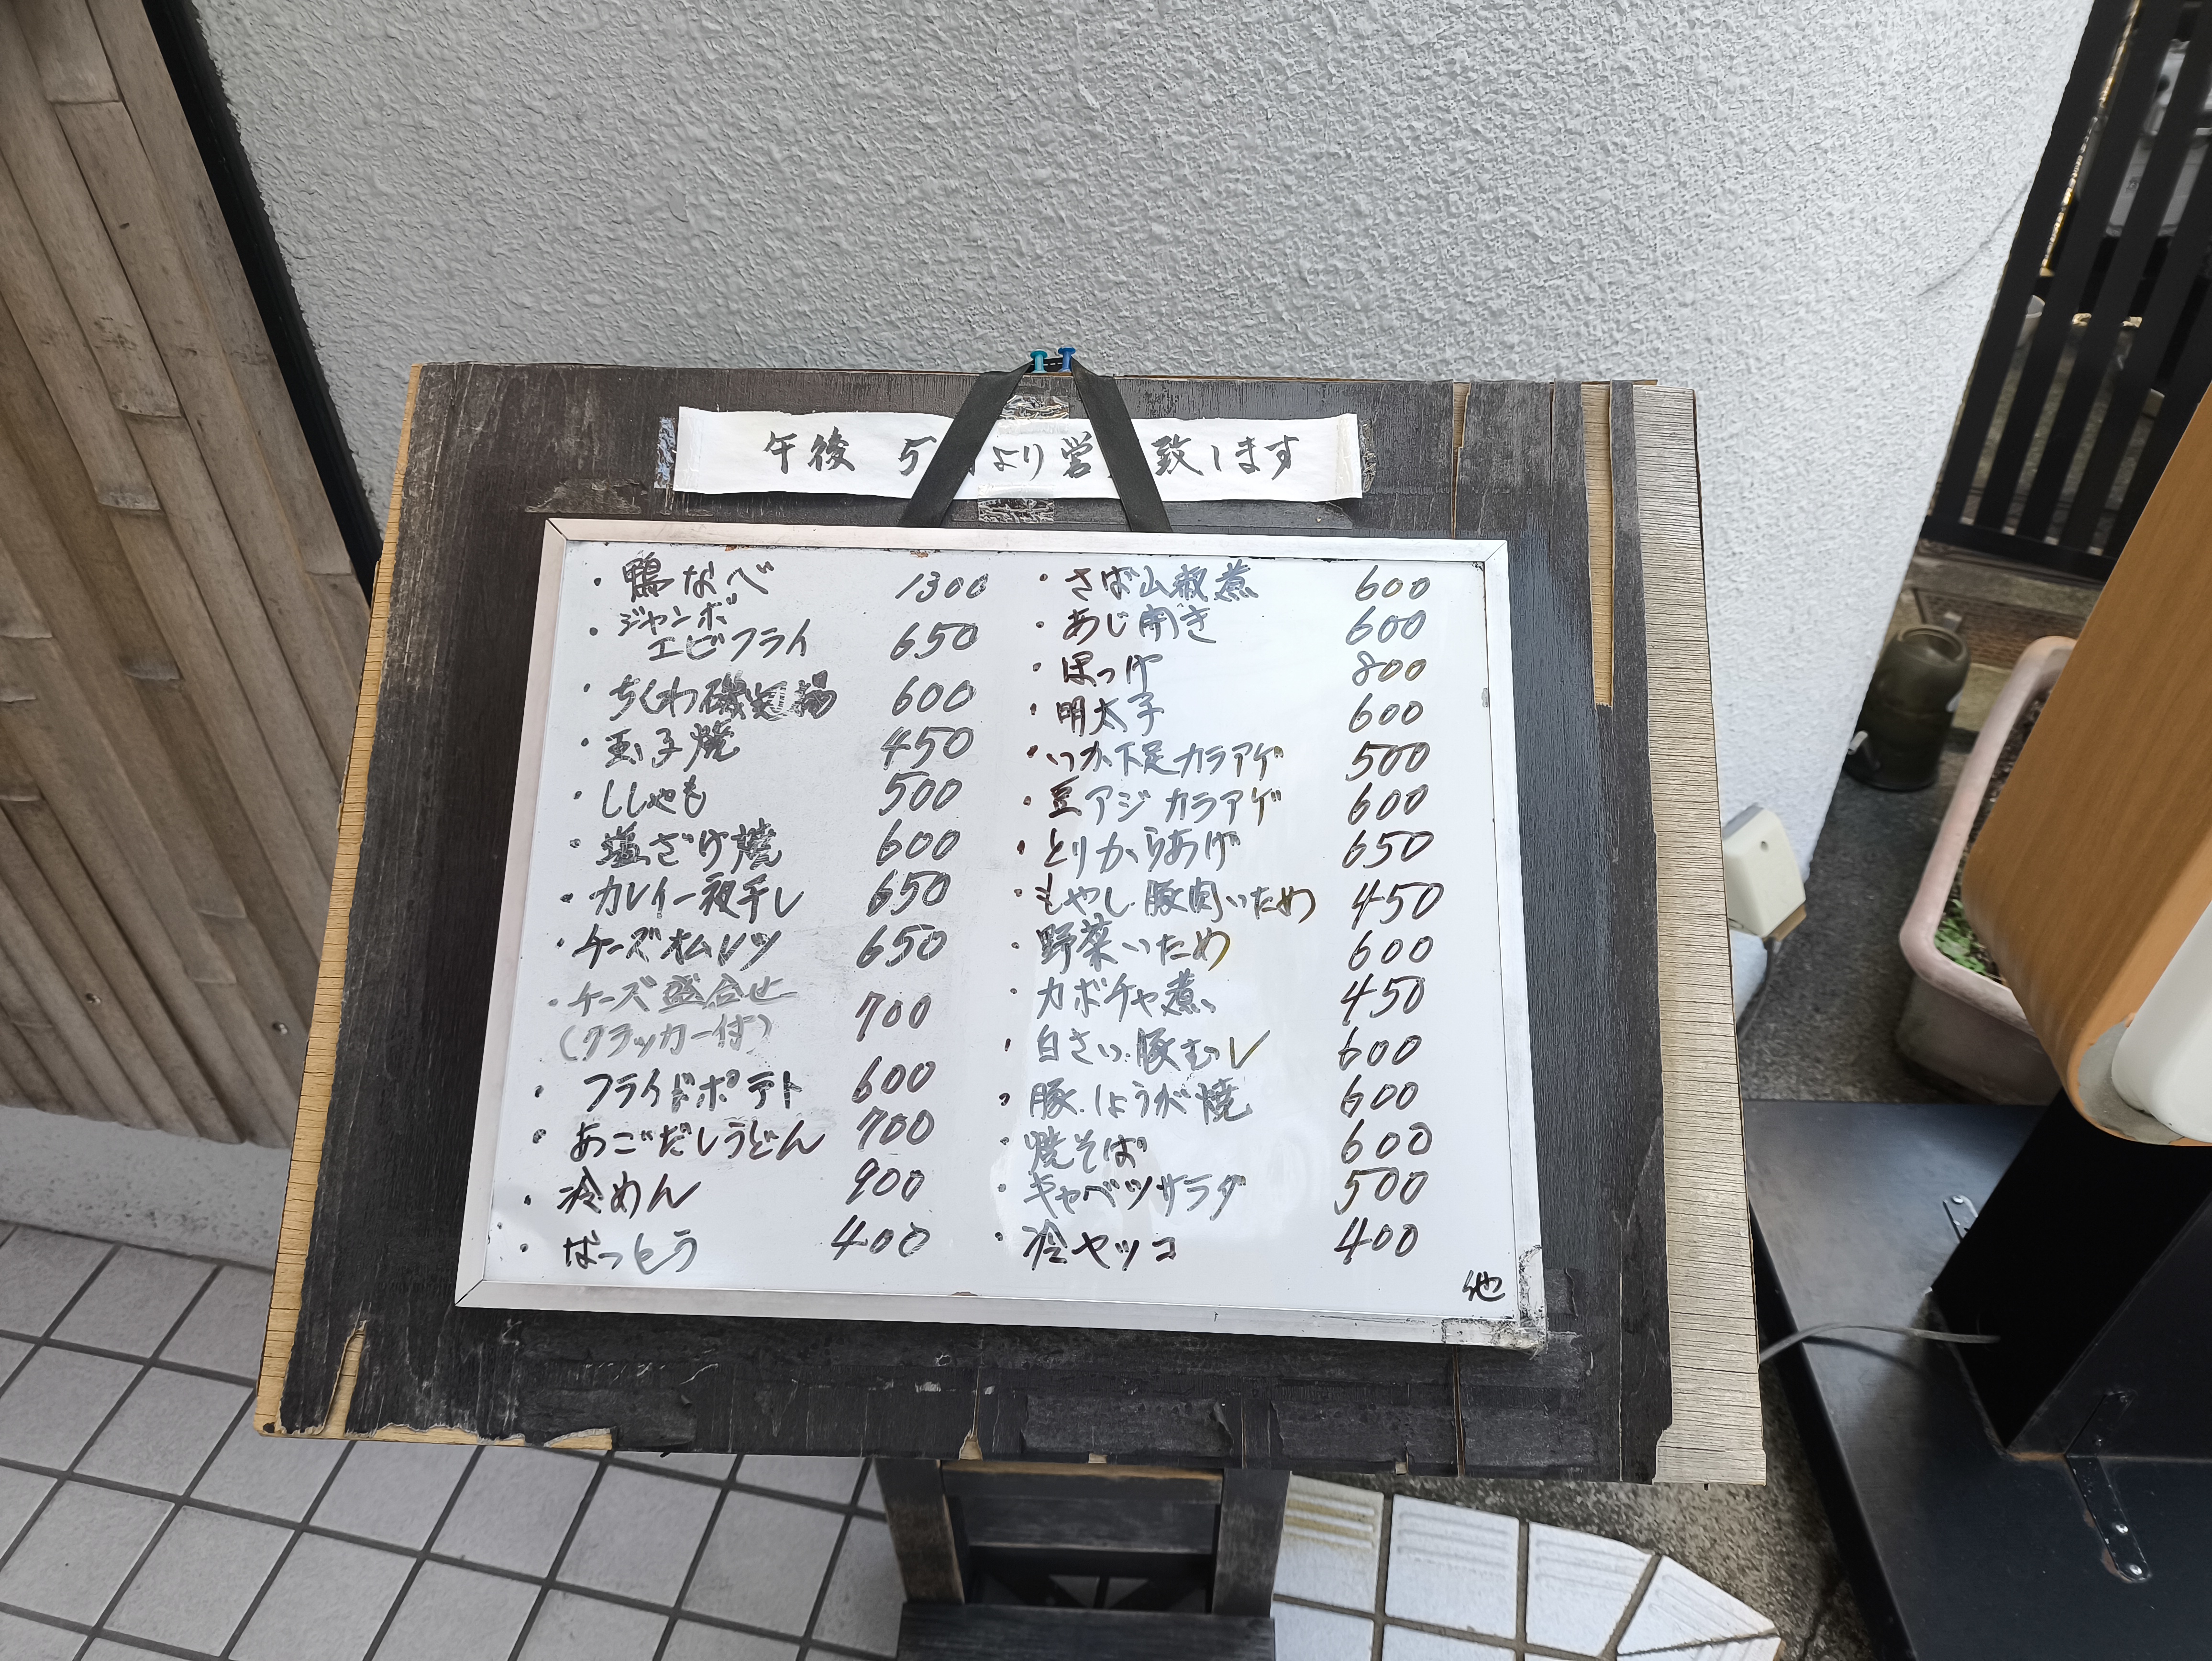 午後 5 より営 致します
・鴨なべ 1300
・ジャンボ
エビフライ 650
・ちくわ磯辺揚 600
・玉子焼 450
・ししゃも 500
・塩ざけ焼 600
・カレイ一夜干し 650
・チーズオムレツ 650
・チーズ盛合せ
(クラッカー付) 700
・フライドポテト 600
・あごだしうどん 700
・冷めん 900
・なっとう 400
・さば山椒煮 600
・あじ開き 600
・ほっけ 800
・明太子 600
・いか下足カラアゲ 500
・豆アジカラアゲ 600
・とりからあげ 650
・もやし豚肉いため 450
・野菜いため 600
・カボチャ煮 450
・白さい豚むし 600
・豚しょうが焼 600
・焼そば 600
・キャベツサラダ 500
・冷ヤッコ 400
他